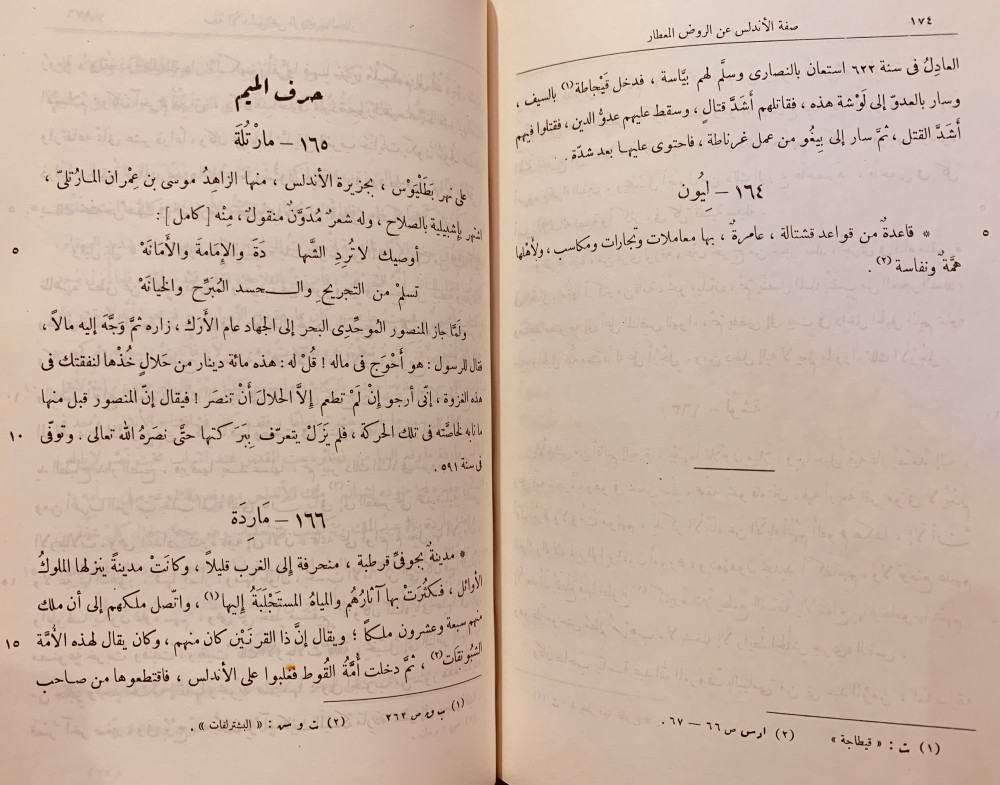 ١٧٤
صفة الأندلس عن الروض المعطار
العادِلُ فى سنة ٦٢٢ استعان بالنصارى وسلَّم لهم بيَّاسة ، فدخل قَيْجاطة (١) بالسيف ،
وسار بالعدوّ إلى لَوْشة هذه ، فقاتلهم أَشَدَّ قتالٍ ، وسقط عليهم عدوُّ الدين ، فقتلوا فيهم
أَشَدَّ القتل ، ثمَّ سار إلى بِيغُو من عمل غرناطة ، فاحتوى عليها بعد شدّة .
١٦٤ – لِيُون
* قاعدةٌ من قواعد قشتالة ، عامرةٌ ، بها معاملات وتجارات ومكاسب ، ولأهلها
٥
هِمَّةٌ ونفاسة (٢) .
(١) ت : « قيطاجة »
(٢) ادس ص ٦٦ – ٦٧ .
حرف الميم
١٦٥ – مارْتُلَة
على نهر بَطَلْيَوْس ، بجزيرة الأندلس ، منها الزاهِدُ موسى بن عِمْران المارْتلىّ ،
اشتهر بإشبيلية بالصلاح ، وله شعرٌ مُدَوَّنٌ منقولٌ ، مِنْه [ كامل ] :
أوصيك لا تُرِدِ الشَّها دَةَ والإمامةَ والأَمَانَهْ
٥
تسلمْ من التجريح والـــحسد المُبَرِّح والخيانَهْ
ولَمَّا جاز المنصور المُوحِّدِى البحر إلى الجهاد عام الأَرَك ، زاره ثمَّ وَجَّهَ إليه مالاً ،
فقال للرسول : هو أَحْوَج فى ماله ! قُلْ له : هذه مائة دينار من حَلالٍ خُذْها لنفقتك فى
هذه الغزوة ، إنّى أرجو إنْ لَمْ تطعم إلاَّ الحلالَ أَنْ تنصَر ! فيقال إنّ المنصور قبل منها
ما نابه لخاصَّته فى تلك الحركة ، فلم يَزَلْ يتعرّف بِبَرَكتها حتَّى نصرَهُ الله تعالى . وتوفّى
١٠
فى سنة ٥٩١ .
١٦٦ – مَارِدَة
* مدينةٌ بجوفىّ قرطبة ، منحرفة إلى الغرب قليلاً ، وكانَتْ مدينةً ينزلها الملوكُ
الأوائل ، فكَثُرَتْ بها آثارُهُم والمياهُ المستَجْلَبَةُ إليها (١) ، واتّصل ملكهم إلى أن ملك
منهم سبعة وعشرون ملكًا ؛ ويقال إنَّ ذا القرنَيْن كان منهم ، وكان يقال لهذه الأُمَّة
١٥
الشبُونقات (٢) ، ثمَّ دخلت أُمَّةُ القُوط فغلبوا على الأندلس ، فاقتطعوها من صاحب
(١) ب ق ص ٢٦٢
(٢) ت و س : « البشترلقات » .